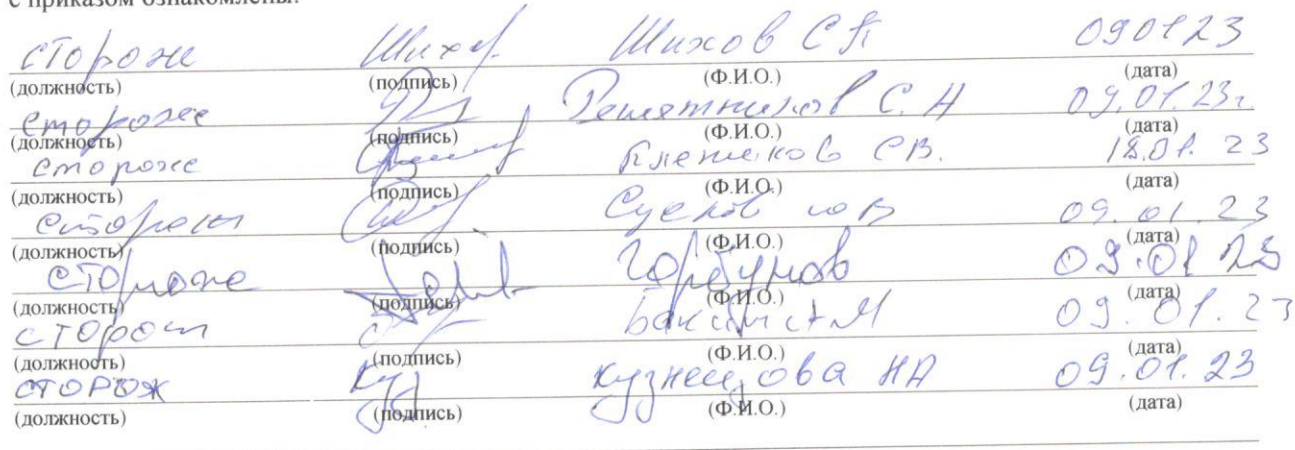 с приказом ознакомлены:
сторож Ших Шихов СП 09 01 23
(должность) (подпись) (Ф.И.О.) (дата)
сторож Решетников С. А 09.01.23г.
(должность) (подпись) (Ф.И.О.) (дата)
сторож С В. 18.01. 23
(должность) (подпись) (Ф.И.О.) (дата)
сторож Сусков ю В 09. 01. 23
(должность) (подпись) (Ф.И.О.) (дата)
сторож Горбунов 09.01 23
(должность) (подпись) (Ф.И.О.) (дата)
сторож А М 09. 01. 23
(должность) (подпись) (Ф.И.О.) (дата)
сторож Куз Кузнецова НА 09.01. 23
(должность) (подпись) (Ф.И.О.) (дата)